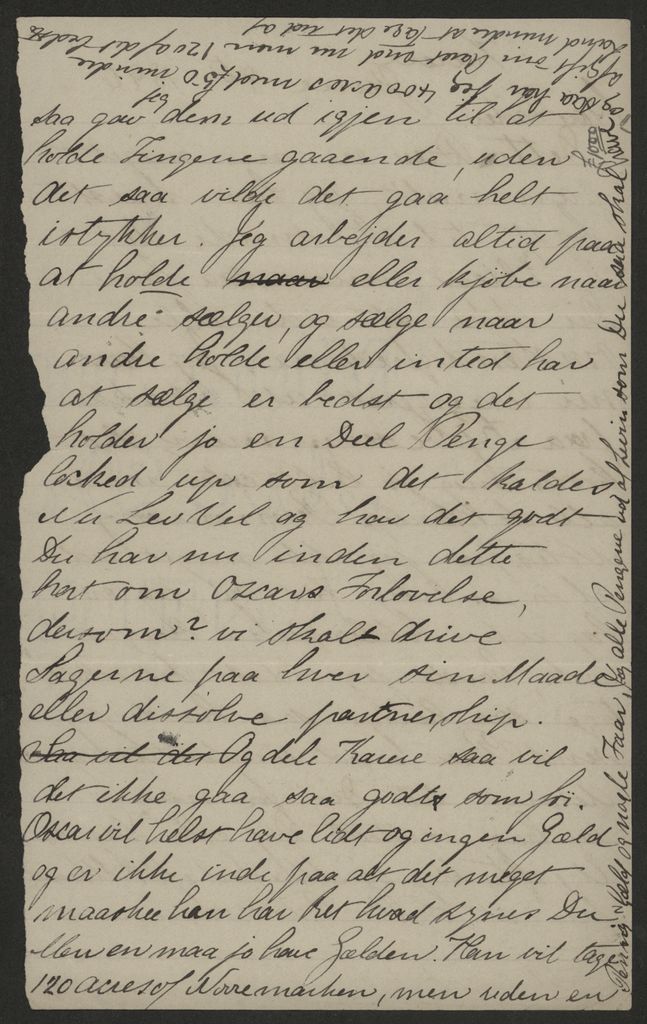 saa gav jeg dem ud igjen til at
holde Tingene gaaende, uden
det saa vilde det gaa helt
istykker. Jeg arbejder altid paa
at holde naar eller kjøbe naar
andre sælger, og sælge naar
andre holde eller inted har
at sælge er bedst og det
holder jo en Deel Penge
locked up som det kaldes
Nu Lev Vel og hav det godt
Du har nu inden dette
hørt om Oscars Forlovelse,
dersom? vi skal drive
Sagerne paa hver sin Maade
eller dissolve partnership.
Saa vil det Og dele Kaarene saa vil
det ikke gaa saa godt som før.
Oscar vil helst have lidt og ingen Gæld
og er ikke inde paa alt det meget
maaskee han har Ret hvad synes Du
Men en maa jo have Gælden. Han vil tage
120 acres of Nørremarken, men uden en
Penny Gjæld og nogle Faar, Og alle Pengene ud af Livin som Du saa skal have
£1000
og saa har Jeg 400 acres med £50 mindre
afgift om Aaret end nu men 120 af det bedste
Land mindre at tage det ud af